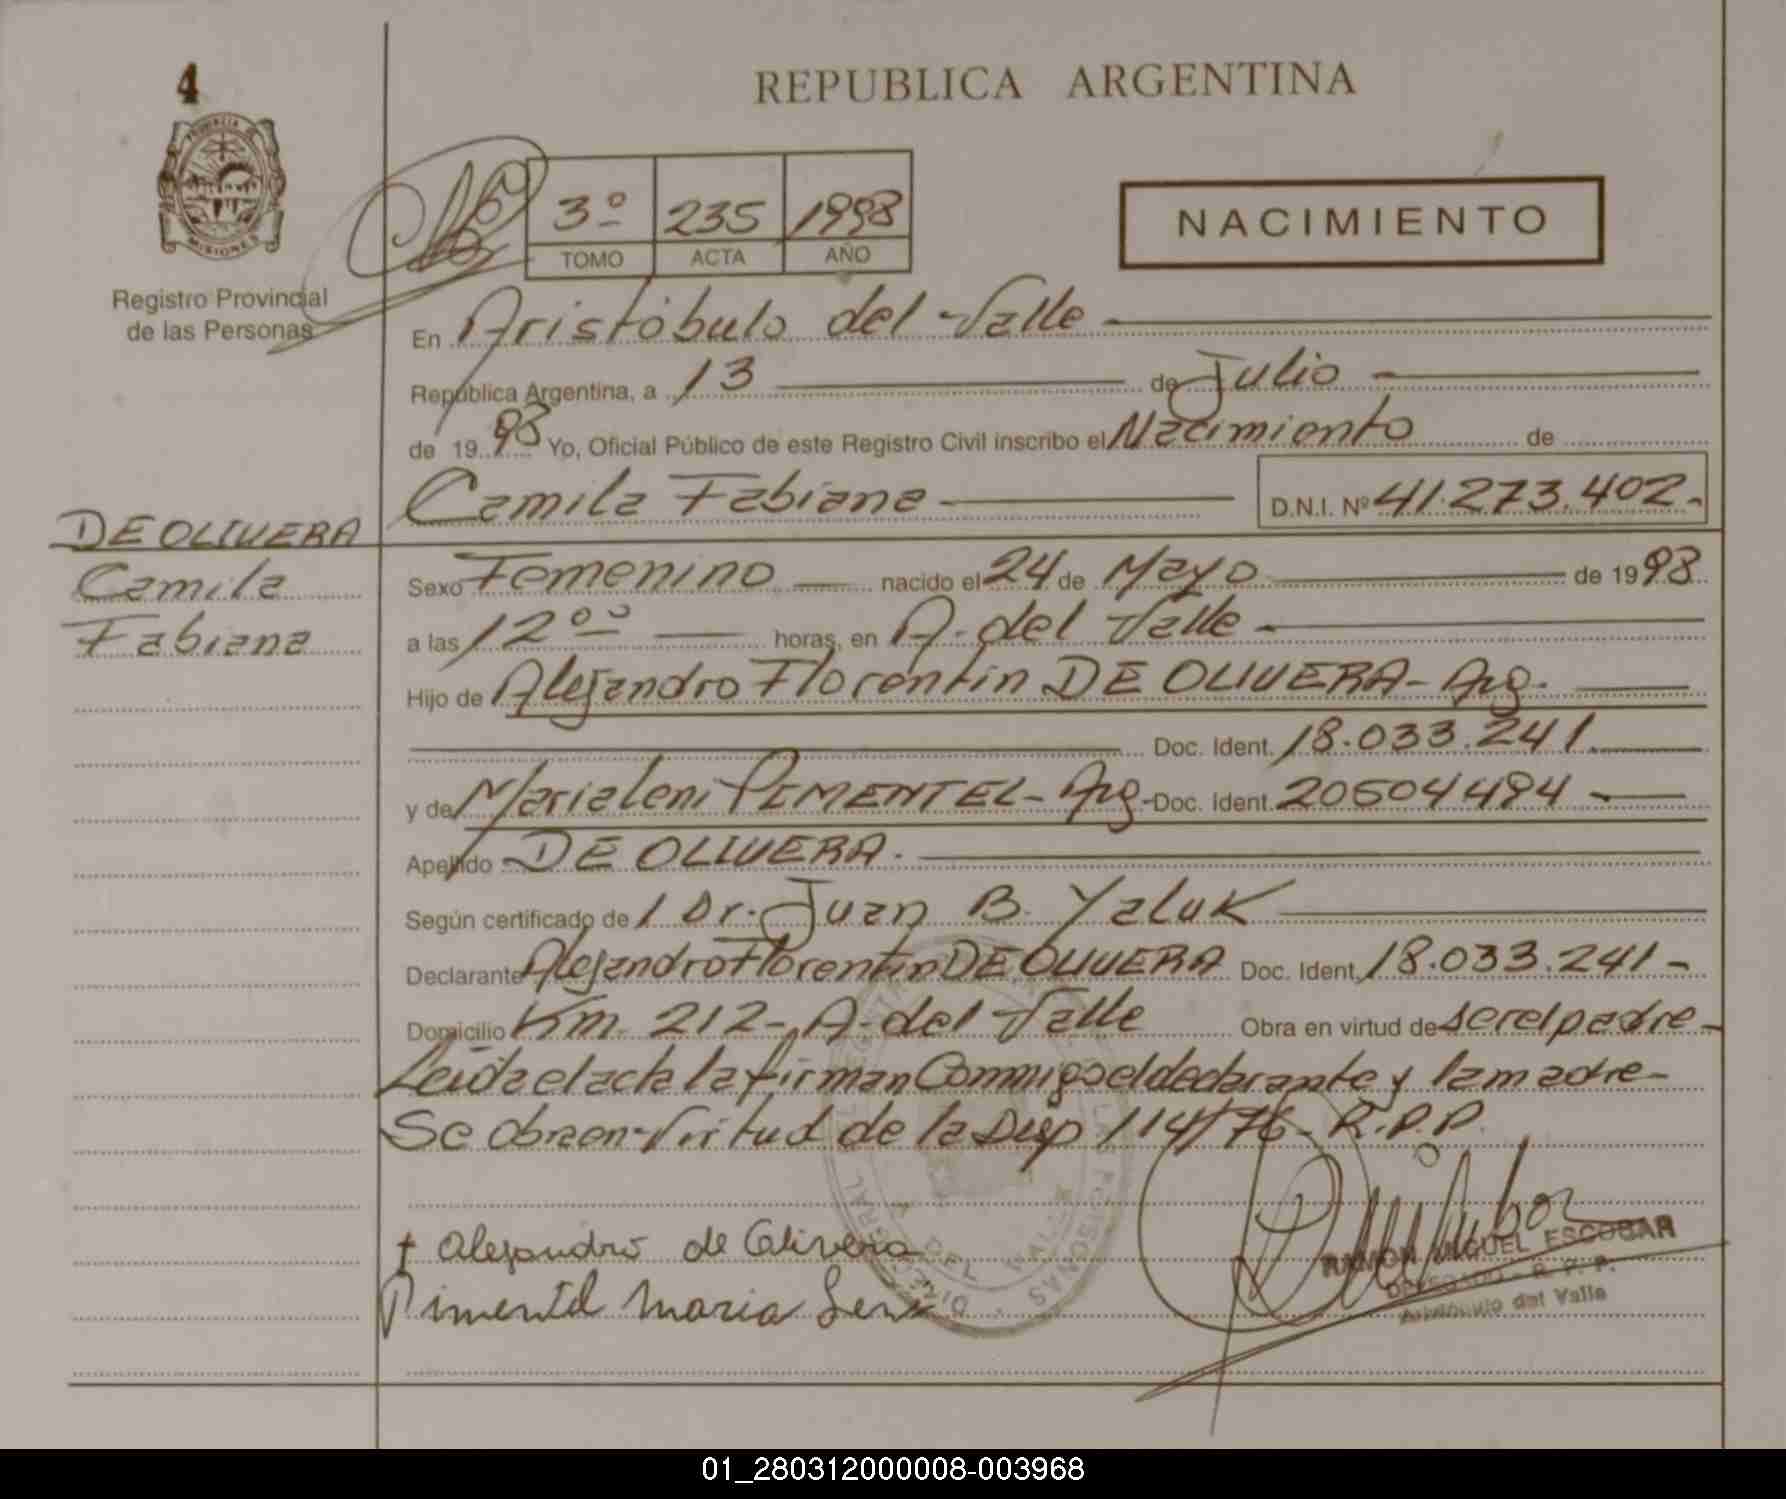 4
REPUBLICA ARGENTINA
PROVINCIA DE
MISIONES
Registro Provincial
de las Personas
3º 235 1998
TOMO ACTA AÑO
NACIMIENTO
En Aristóbulo del Valle
República Argentina, a 13 de Julio
de 1998 Yo, Oficial Público de este Registro Civil inscribo el Nacimiento de
Camila Fabiana D.N.I. Nº 41.273.402.-
DE OLIVERA
Camila
Fabiana
Sexo Femenino nacido el 24 de Mayo de 1998
a las 12ºº horas, en A. del Valle -
Hijo de Alejandro Florentin DE OLIVERA - Arg.
Doc. Ident. 18.033.241
y de Maria Leni PIMENTEL - Arg - Doc. Ident. 20504494 -
Apellido DE OLIVERA.
Según certificado de Dr. Juan B. Yaluk
Declarante Alejandro Florentin DE OLIVERA Doc. Ident. 18.033.241 -
Domicilio Km. 212 - A. del Valle Obra en virtud de ser el padre -
Leida el acta la firman Conmigo el declarante y la madre -
Se obra en Virtud de la Disp 114/76 - R.P.P.
Alejandro de Olivera
Pimentel Maria Leni
RAMON MIGUEL ESCOBAR
DELEGADO - R. P. P.
Aristóbulo del Valle
01_280312000008-003968